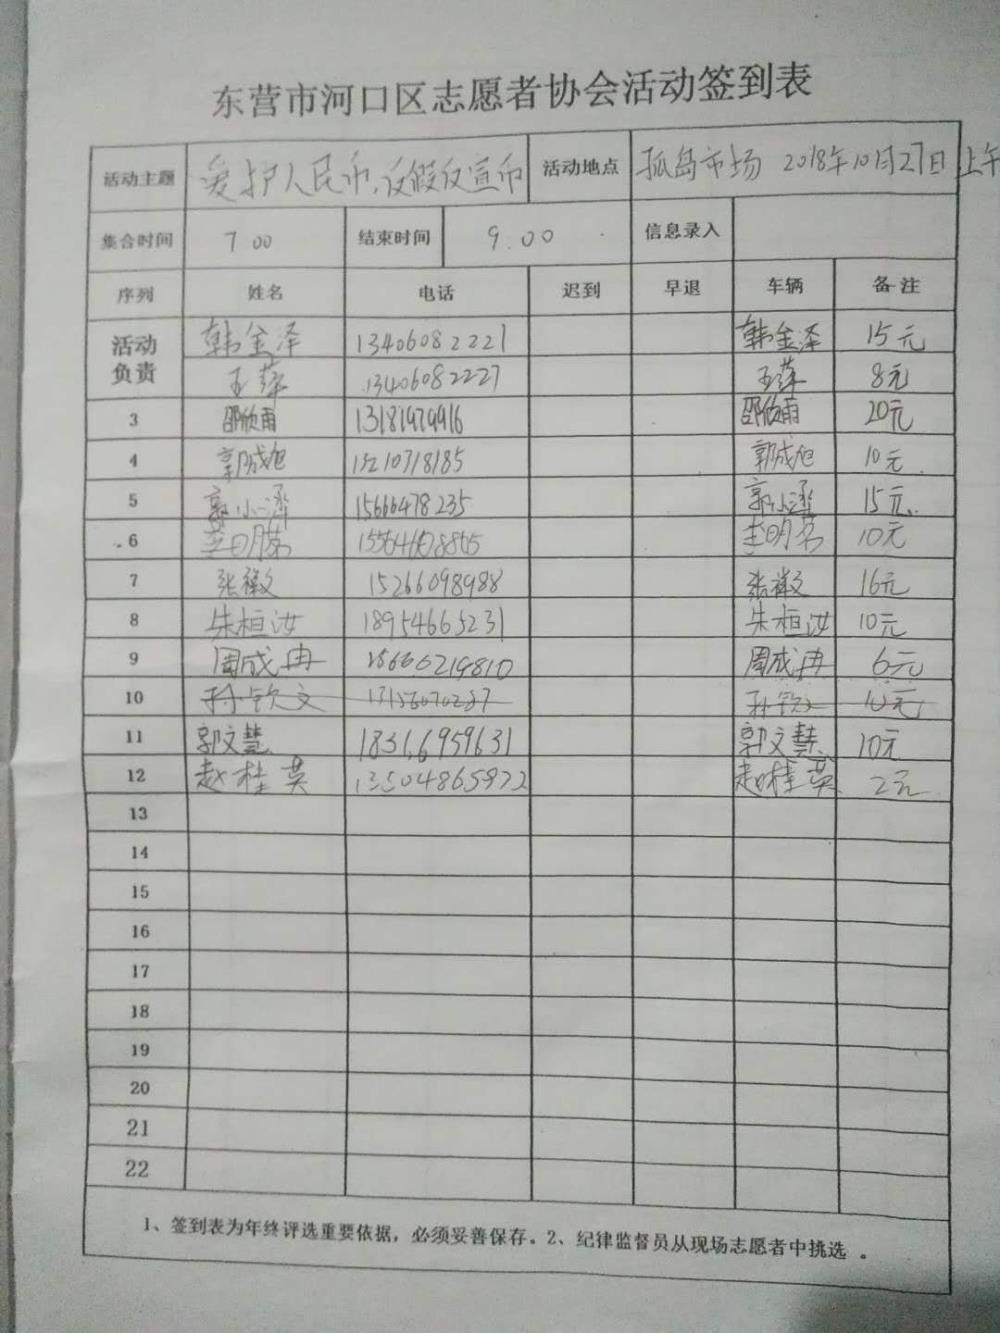 东营市河口区志愿者协会活动签到表
活动主题 爱护人民币、反假反宣币 活动地点 孤岛市场 2018年10月27日上午
集合时间 7 00 结束时间 9.00 信息录入
序列 姓名 电话 迟到 早退 车辆 备注
活动负责 韩金泽 13406082221 韩金泽 15元
王萍 13406082227 王萍 8元
3 邵欣雨 13181979916 邵欣雨 20元
4 郭成旭 15210718185 郭成旭 10元
5 郭小泽 15666478235 郭小泽 15元
6 10元
7 张徽文 15266098988 张徽文 16元
8 朱桓汝 18954665231 朱桓汝 10元
9 周成冉 15666219810 周成冉 6元
10 孙钦文 孙钦文 10元
11 郭文慧 18316959631 郭文慧 10元
12 赵桂英 赵桂英 2元
13
14
15
16
17
18
19
20
21
22
1、签到表为年终评选重要依据，必须妥善保存。2、纪律监督员从现场志愿者中挑选 。